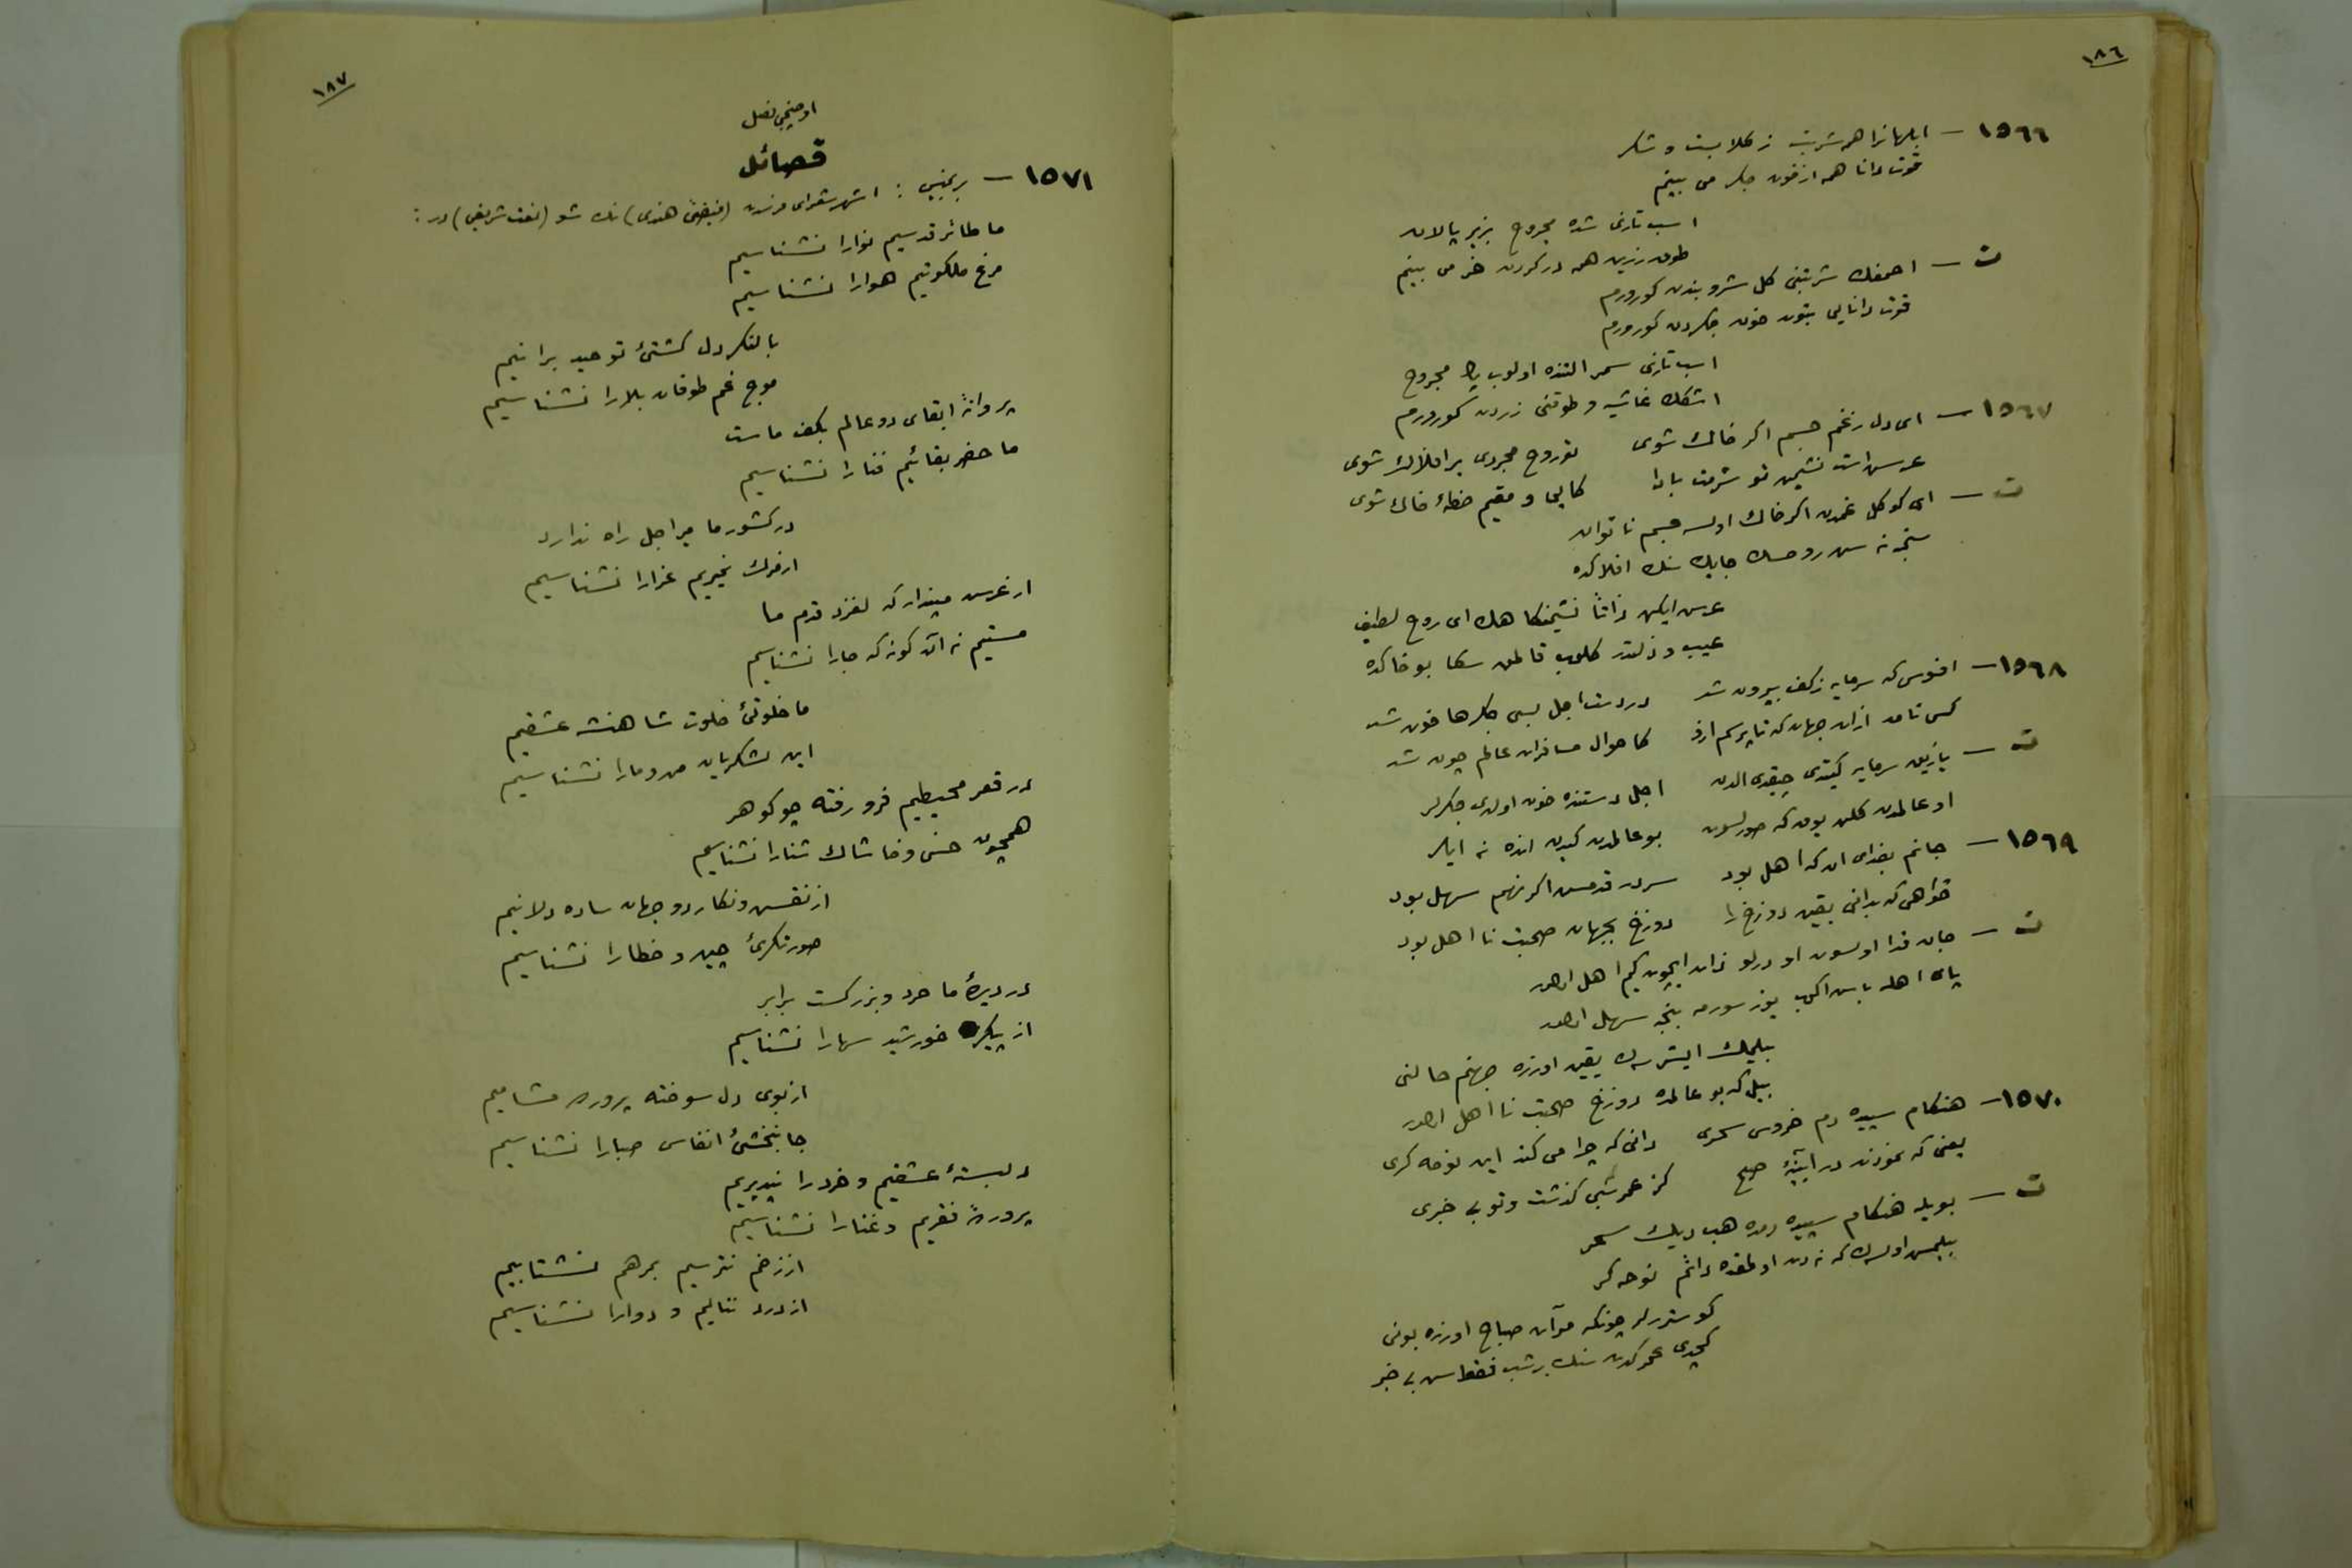 ١٨٦
١٥٦٦ — ابلهانرا همه شربت ز كلابست و شكر
قوت دانا همه از خون جكر می بينم
اسب تازی شده مجروح بزير پالان
طوق زرين همه در كردن خر می بينم
ت — احمقك شربتنی كل شروبندن كورورم
قوت دانايی بتون خون جكردن كورورم
اسب تازی سمر التنده اولوب مجروح
اشكك غاشيه و طوقنی زردن كورورم
١٥٦٧ — ای دل زغم جسم اكر خاك شوی تو روح مجردی بر افلاك شوی
عرس است نشيمن تو شرمت بادا كايی و مقيم خطهٔ خاك شوی
ت — ای كوكل غمدن اكر خاك اولسه جسم ناتوان
سن روحسك جايك سنك افلاكده
عرس ايكن ذاتا نشيمنكاهك ای روح لطيف
عيب و ذلتدر كلوب قالمق سكا بو خاكده
١٥٦٨ — افسوس كه سرمايه زكف بيرون شد در دست اجل بسی جكرها خون شد
كس نامد ازان جهان كه تا پرسم ازو كاحوال مسافران عالم چون شد
ت — يازيق سرمايه كيتدی چيقدی الدن اجل دستنده خون اولدی جكرلر
او عالمدن كلن يوق كه صورلسون بو عالمدن كيدن انده نه ايلر
١٥٦٩ — جانم بفدای ان كه اهل بود سر در قدمش اكر نهم سهل بود
خواهی كه بدانی بيقين دوزخ را دوزخ بجهان صحبت نا اهل بود
ت — جان فدا اولسون او درلو ذات ايچون كيم اهل اوله
پای اهله باس اكوب يوز سورمه بنجه سهل اوله
بيلمك ايسترسك يقين اوزره جهنم حالنی
بيل كه بو عالمده دوزخ صحبت نا اهل اوله
١٥٧٠ — هنكام سپيده دم خروس سحری دانی كه چرا می كند اين نوحه كری
يعنی كه نمودند در آيينهٔ صبح كز عمر شبی كذشت و تو بی خبری
ت — بويله هنكام سپيده دمده هب ديك سحر
بيلمش اولسه ك كه نه دن اولمقده دائم نوحه كر
كوستررلر چونكه مرآت صباح اوزره بونی
كچدی عمركدن سنك بر شب فقط سن بی خبر
١٨٧
اوچنجی فصل
قصائل
١٥٧١ — برنجيسی : اشهر شعرای فرسدن (فيضیٔ هندی) نك شو (نعت شريفی) در :
ما طائر قدسيم نوارا نشناسيم
مرغ ملكوتيم هوارا نشناسيم
با لنكر دل كشتیٔ توحيد برانيم
موج غم طوفان بلارا نشناسيم
پروانهٔ ابقای دو عالم بكف ماست
ما خضر بقائيم فنارا نشناسيم
در كشور ما مير اجل راه ندارد
از مرك نميريم عزارا نشناسيم
از عرس مپندار كه لغزد قدم ما
مستيم نه آن كونه كه جارا نشناسيم
ما خلوتیٔ خلوت شاهنشه عشقيم
اين لشكريان من و مارا نشناسيم
در قعر محيطيم فرو رفته چو كوهر
همچون خس و خاشاك شنارا نشناسيم
از نقش و نكار دو جهان ساده دلانيم
صورتكریٔ چين و خطارا نشناسيم
در ديدهٔ ما خرد و بزركست برابر
از پيكر خورشيد سهارا نشناسيم
از بوی دل سوخته پرورده مشاميم
جانبخشیٔ انفاس صبارا نشناسيم
دلبستهٔ عشقيم و خردرا نپذيريم
پروردهٔ فقريم و غنارا نشناسيم
از زخم نترسيم بمرهم نشتابيم
از درد نناليم و دوارا نشناسيم